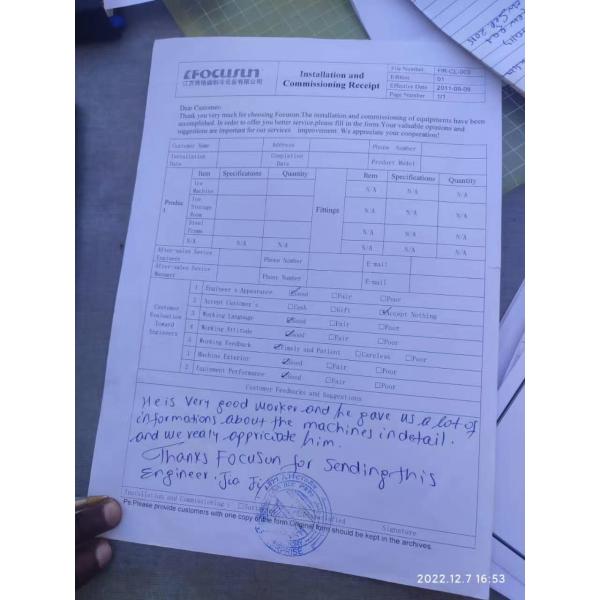 FOCUSUN
Installation and
Commissioning Receipt
File Number HR-CL-003
Edition 01
Effective Date 2011-09-09
Page Number 1/1
Dear Customer:
Thank you very much for choosing Focusun.The installation and commissioning of equipments have been
accomplished. In order to offer you better service,please fill in the form.Your valuable opinions and
suggestions are important for our services improvement. We appreciate your cooperation!
Customer Name Address Phone Number
Installation Date Completion Date Product Model
Item Specifications Quantity Item Specifications Quantity
Product
Ice Machine
Ice Storage Room
Steel Frame
N/A N/A N/A
Fittings
N/A N/A N/A
N/A N/A N/A
N/A N/A N/A
N/A N/A N/A
After-sales Service Engineer Phone Number E-mail
After-sales Service Manager Phone Number E-mail
Customer Evaluation Toward Engineers
1 Engineer's Appearance ☑Good □Fair □Poor
2 Accept Customer's □Cash □Gift ☑Accept Nothing
3 Working Language ☑Good □Fair □Poor
4 Working Attitude ☑Good □Fair □Poor
5 Working Feedback ☑Timely and Patient □Careless □Poor
1 Machine Exterior ☑Good □Fair □Poor
2 Equipment Performance ☑Good □Fair □Poor
Customer Feedbacks and Suggestions
He is very good worker and he gave us a lot of
informations about the machines in detail.
and we realy appriciate him.
Thanks FOCUSUN for Sending this
Engineer. Jia Ji
Installation and Commissioning : Signature
Ps.Please provide customers with one copy of the form.Original form should be kept in the archives.
2022.12.7 16:53